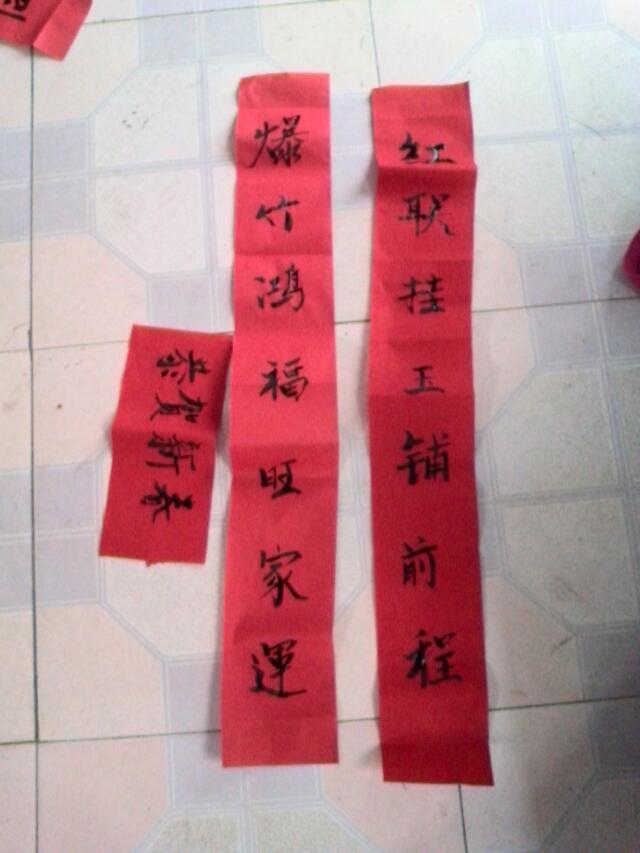 红联挂玉铺前程
爆竹鸿福旺家運
恭賀新春